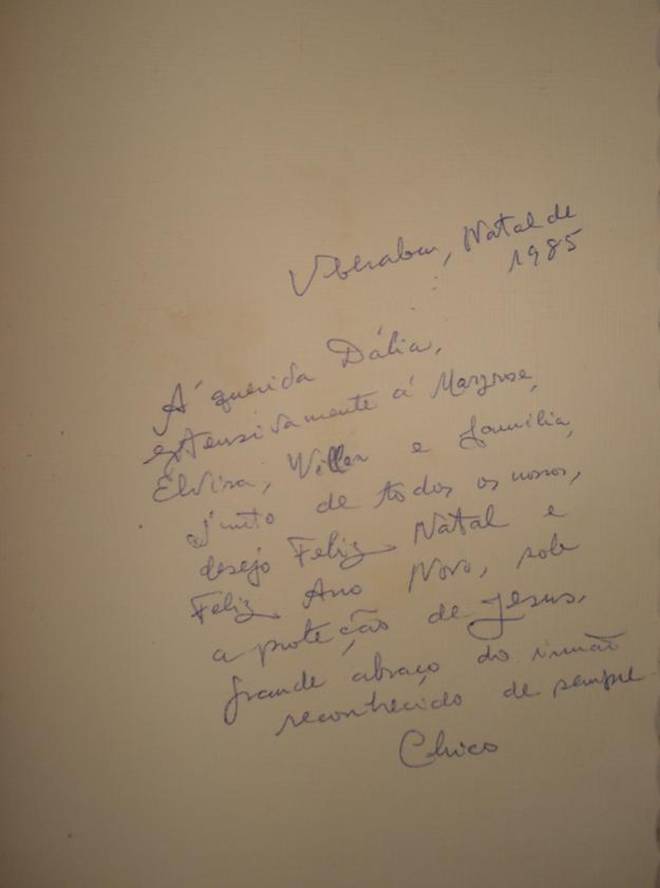 Uberaba, Natal de
1985
Á querida Dália,
extensivamente á Mayrose,
Elvira, Willer e família,
junto de todos os nossos,
desejo Feliz Natal e
Feliz Ano Novo, sob
a proteção de Jesus.
Grande abraço do irmão
reconhecido de sempre
Chico